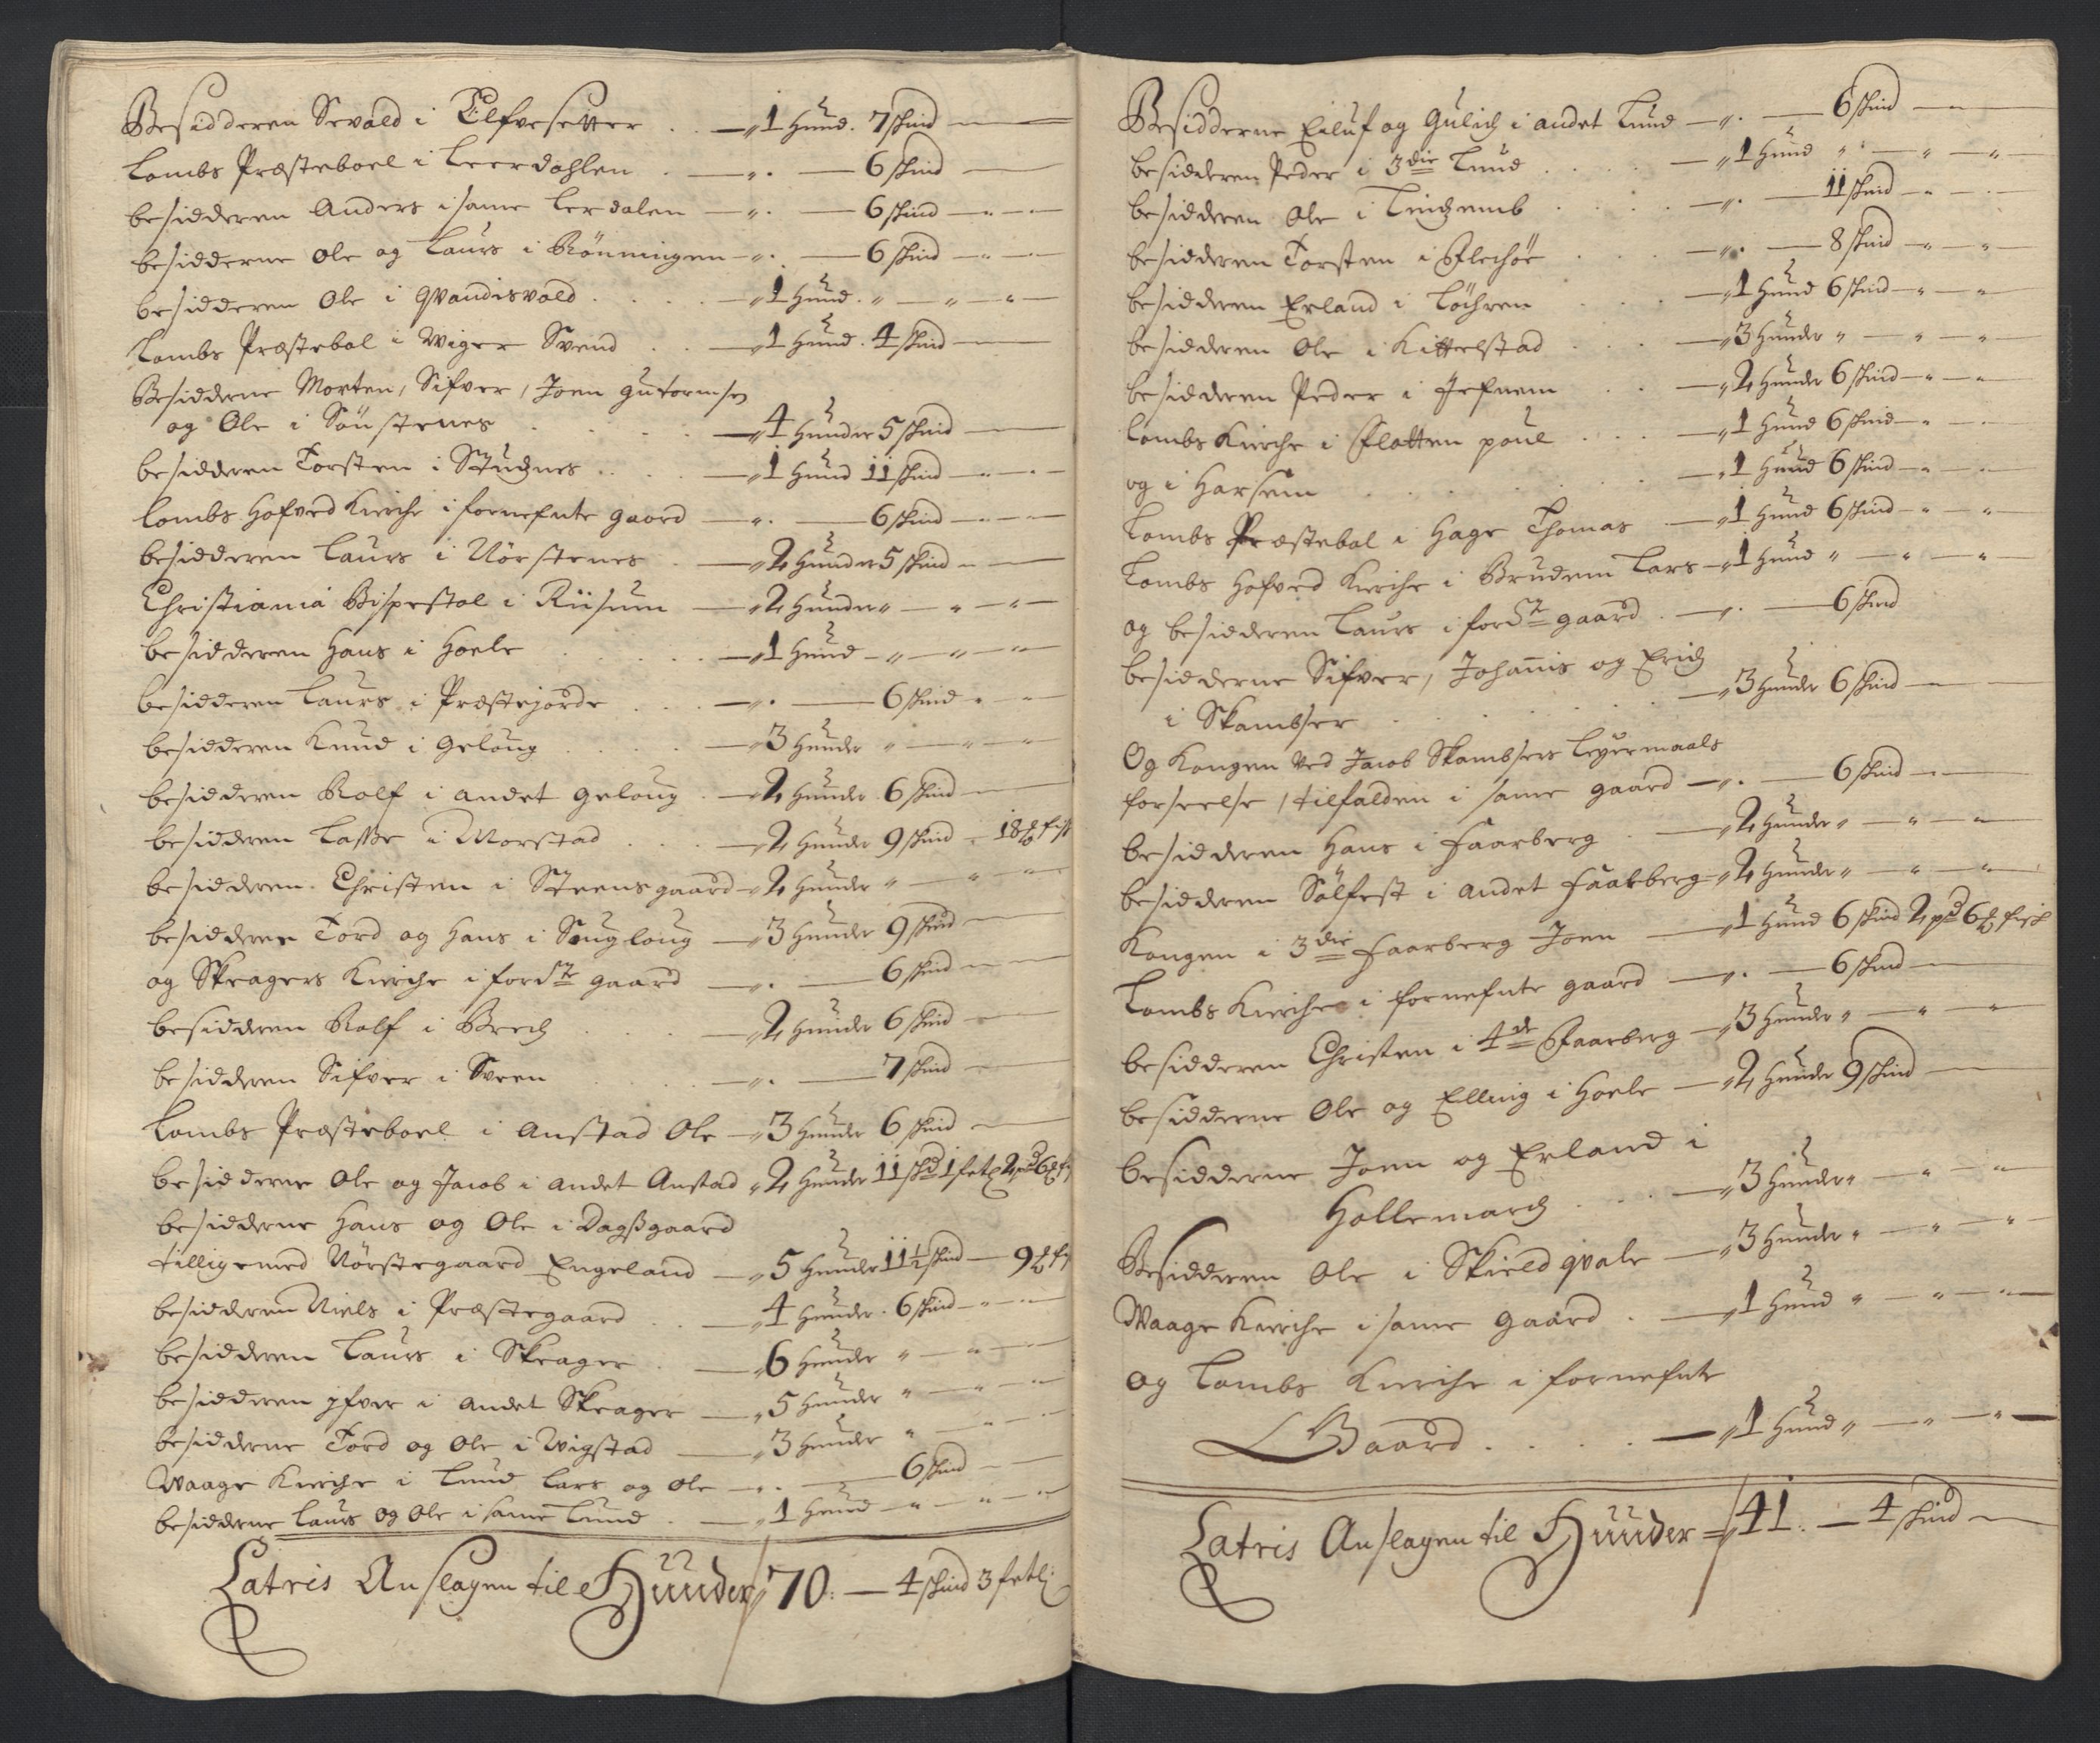 Besidderen Sevald i Elfvesetter . . — „ 1 Hund. 7 skind —
Lombs Præsteboel i Leerdahlen . — „. — 6 skind —
besidderen Anders i same Lerdalen — „. — 6 skind — „ —
besidderne Ole og Laurs i Rönningen — „. — 6 skind — „ —
besidderen Ole i Qvandisvold . . . . — „ 1 Hund. „ — „ — „ —
Lombs Præstebol i Wiger Svend . . — „ 1 Hund. 4 skind —
Besidderne Morten, Sifver, Joen Gutormsen
og Ole i Sönstenes . . . . — „ 4 Hunder 5 skind —
besidderen Torsten i Stuchnes . . . — „ 1 Hund 11 skind — „ —
Lombs Hofved Kirche i fornefnte gaard — „. — 6 skind — „ —
besidderen Laurs i Nörstenes . — „ 2 Hunder 5 skind „ —
Christiania Bispestol i Riisum — „ 2 Hunder „ — „ — „ —
besidderen Hans i Hoele . . . . — „ 1 Hund — „ — „ — „ —
besidderen Laurs i Præstejorde . . . — „. — 6 skind „ —
besidderen Knud i Geloug . . . . — „ 3 Hunder „ — „ — „
besidderen Rolf i andet Geloug . — „ 2 Hunder 6 skind —
besidderen Lasse i Morstad . . . — „ 2 Hunder 9 skind „ 18 ℔ fisk
besidderen Christen i Steensgaard — „ 2 Hunder „ — „ — „
besidderne Tord og Hans i Sougloug — „ 3 Hunder 9 skind —
og Skeagers Kirche i fordte gaard — „. — 6 skind —
besidderen Rolf i Brech . . . — „ 2 Hunder 6 skind —
besidderen Sifver i Sveen . . . — „. — 7 skind —
Lombs Præsteboel i Anstad Ole — „ 3 Hunder 6 skind —
besidderne Ole og Jacob i andet Anstad „ 2 Hunder 11 skd 1 fetl 2 pd 6 ℔ f
besidderne Hans og Ole i Dagsgaard
tilligemed Nörstegaard Engeland — „ 5 Hunder 11½ skind — 9 ℔ f
besidderen Niels i Præstegaard . . — „ 4 Hunder. 6 skind — „ —
besidderen Laurs i Skeager . — „ 6 Hunder „ — „ —
besidderen Jfver i andet Skeager — „ 5 Hunder „ — „ —
besidderne Tord og Ole i Wigstad — „ 3 Hunder „ — „ —
Waage Kirche i Lund Lars og Ole — „. — 6 skind —
besidderne Laurs og Ole i same Lund . — „ 1 Hund — „ — „ — „
Latris Anslagen til Hunder „ 70. — 4 skind 3 fetl:
Besidderne Eiluf og Gulich i andet Lund — „. — 6 skind — „ —
besidderen Peder i 3die Lund . . . . — „ 1 Hund „ — „ — „
besidderen Ole i . . . . — „. — 11 skind — „ —
besidderen Torsten i Flechöe . . . — „. — 8 skind — „ — „
besidderen Erland i Löchren . . . — „ 1 Hund 6 skind — „ — „
besidderen Ole i Kittelstad . . . — „ 3 Hunder „ — „ — „
besidderen Peder i Jefnem . . — „ 2 Hunder 6 skind — „ — „
Lombs Kirche i Flatten poul . . . — „ 1 Hund 6 skind — „ —
og i Harsem . . . . . . — „ 1 Hund 6 skind — „ — „
Lombs Præstebol i Hage Thomas . — „ 1 Hund 6 skind — „ — „
Lombs Hofved Kirche i Brudem Lars — „ 1 Hund „ — „ — „
og besidderen Laurs i fordte gaard . — „. — 6 skind
besidderne Sifver, Johannis og Erich
i Skambser . . . . . . — „ 3 Hunder 6 skind — „ —
Og Kongen ved Jacob Skambsers Leyermaals
forseelse, tilfalden i same gaard — „. — 6 skind — „ —
besidderen Hans i Faarberg . — „ 2 Hunder „ — „ — „
besidderen Sölfest i andet Faarberg „ 2 Hunder „ — „ — „
Kongen i 3die Faarberg Joen — „ 1 Hund 6 skind 2 pd 6 ℔ fisk
Lombs Kirche i fornefnte gaard — „. — 6 skind —
besidderen Christen i 4de Faarberg — „ 3 Hunder „ — „ — „
besidderne Ole og Elling i Hoele — „ 2 Hunder 9 skind —
besidderne Joen og Erland i
Hollemarch . . . — „ 3 Hunder „ — „ — „
Besidderen Ole i Skieldqvale — „ 3 Hunder „ — „ — „
Waage Kirche i same gaard . — „ 1 Hund „ — „ — „
og Lombs Kirche i fornefnte
Gaard . . . . — „ 1 Hund „ — „ — „ —
Latris Anslagen til Hunder „ 41. — 4 skind —